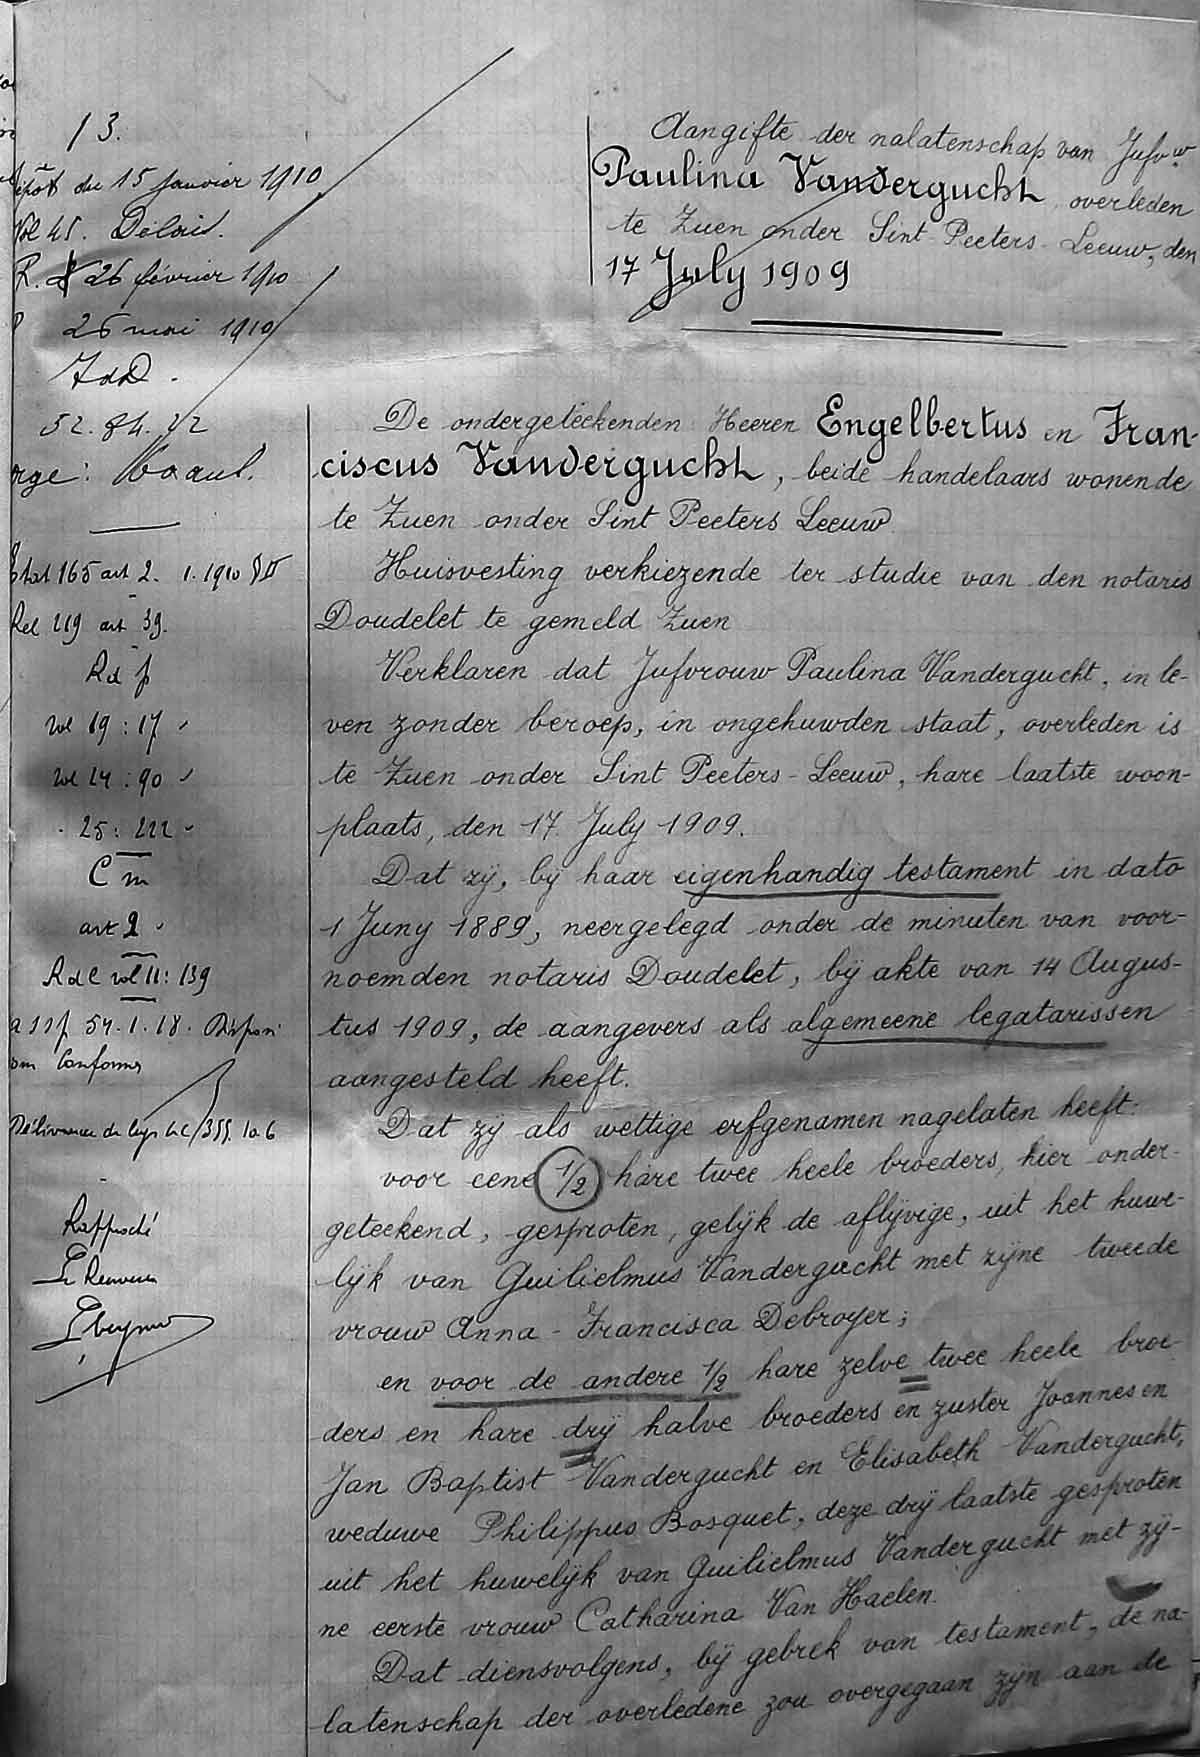 13.
dépôt du 15 janvier 1910
Vol 45. Délai.
R. 26 février 1910
26 mai 1910
52.84.72
Etat 165 art 2. 1.1910
Rel 219 art 39.
Rd f
vol 19 : 17
vol 24 : 90
25 : 222
C m
art 2
RdC vol 11 : 139
54.1.18.
conforme
Délivrance de legs
Aangifte der nalatenschap van Jufvw
Paulina Vandergucht, overleden
te Zuen onder Sint Peeters-Leeuw, den
17 July 1909
De ondergeteekenden Heeren Engelbertus en Fran-
ciscus Vandergucht, beide handelaars wonende
te Zuen onder Sint Peeters Leeuw
Huisvesting verkiezende ter studie van den notaris
Doudelet te gemeld Zuen
Verklaren dat Jufvrouw Paulina Vandergucht, in le-
ven zonder beroep, in ongehuwden staat, overleden is
te Zuen onder Sint Peeters-Leeuw, hare laatste woon-
plaats, den 17 July 1909.
Dat zij, bij haar eigenhandig testament in dato
1 Juny 1889, neergelegd onder de minuten van voor-
noemden notaris Doudelet, bij akte van 14 Augus-
tus 1909, de aangevers als algemeene legatarissen
aangesteld heeft.
Dat zij als wettige erfgenamen nagelaten heeft:
voor eene 1/2 hare twee heele broeders, hier onder-
geteekend, gesproten, gelijk de aflijvige, uit het huwe-
lijk van Guilielmus Vandergucht met zijne tweede
vrouw Anna-Francisca Debroyer;
en voor de andere 1/2 hare zelve twee heele broe-
ders en hare drij halve broeders en zuster Joannes en
Jan Baptist Vandergucht en Elisabeth Vandergucht,
weduwe Philippus Bosquet, deze drij laatste gesproten
uit het huwelijk van Guilielmus Vandergucht met zij-
ne eerste vrouw Catharina Van Haelen.
Dat diensvolgens, bij gebrek van testament, de na-
latenschap der overledene zou overgegaan zijn aan de